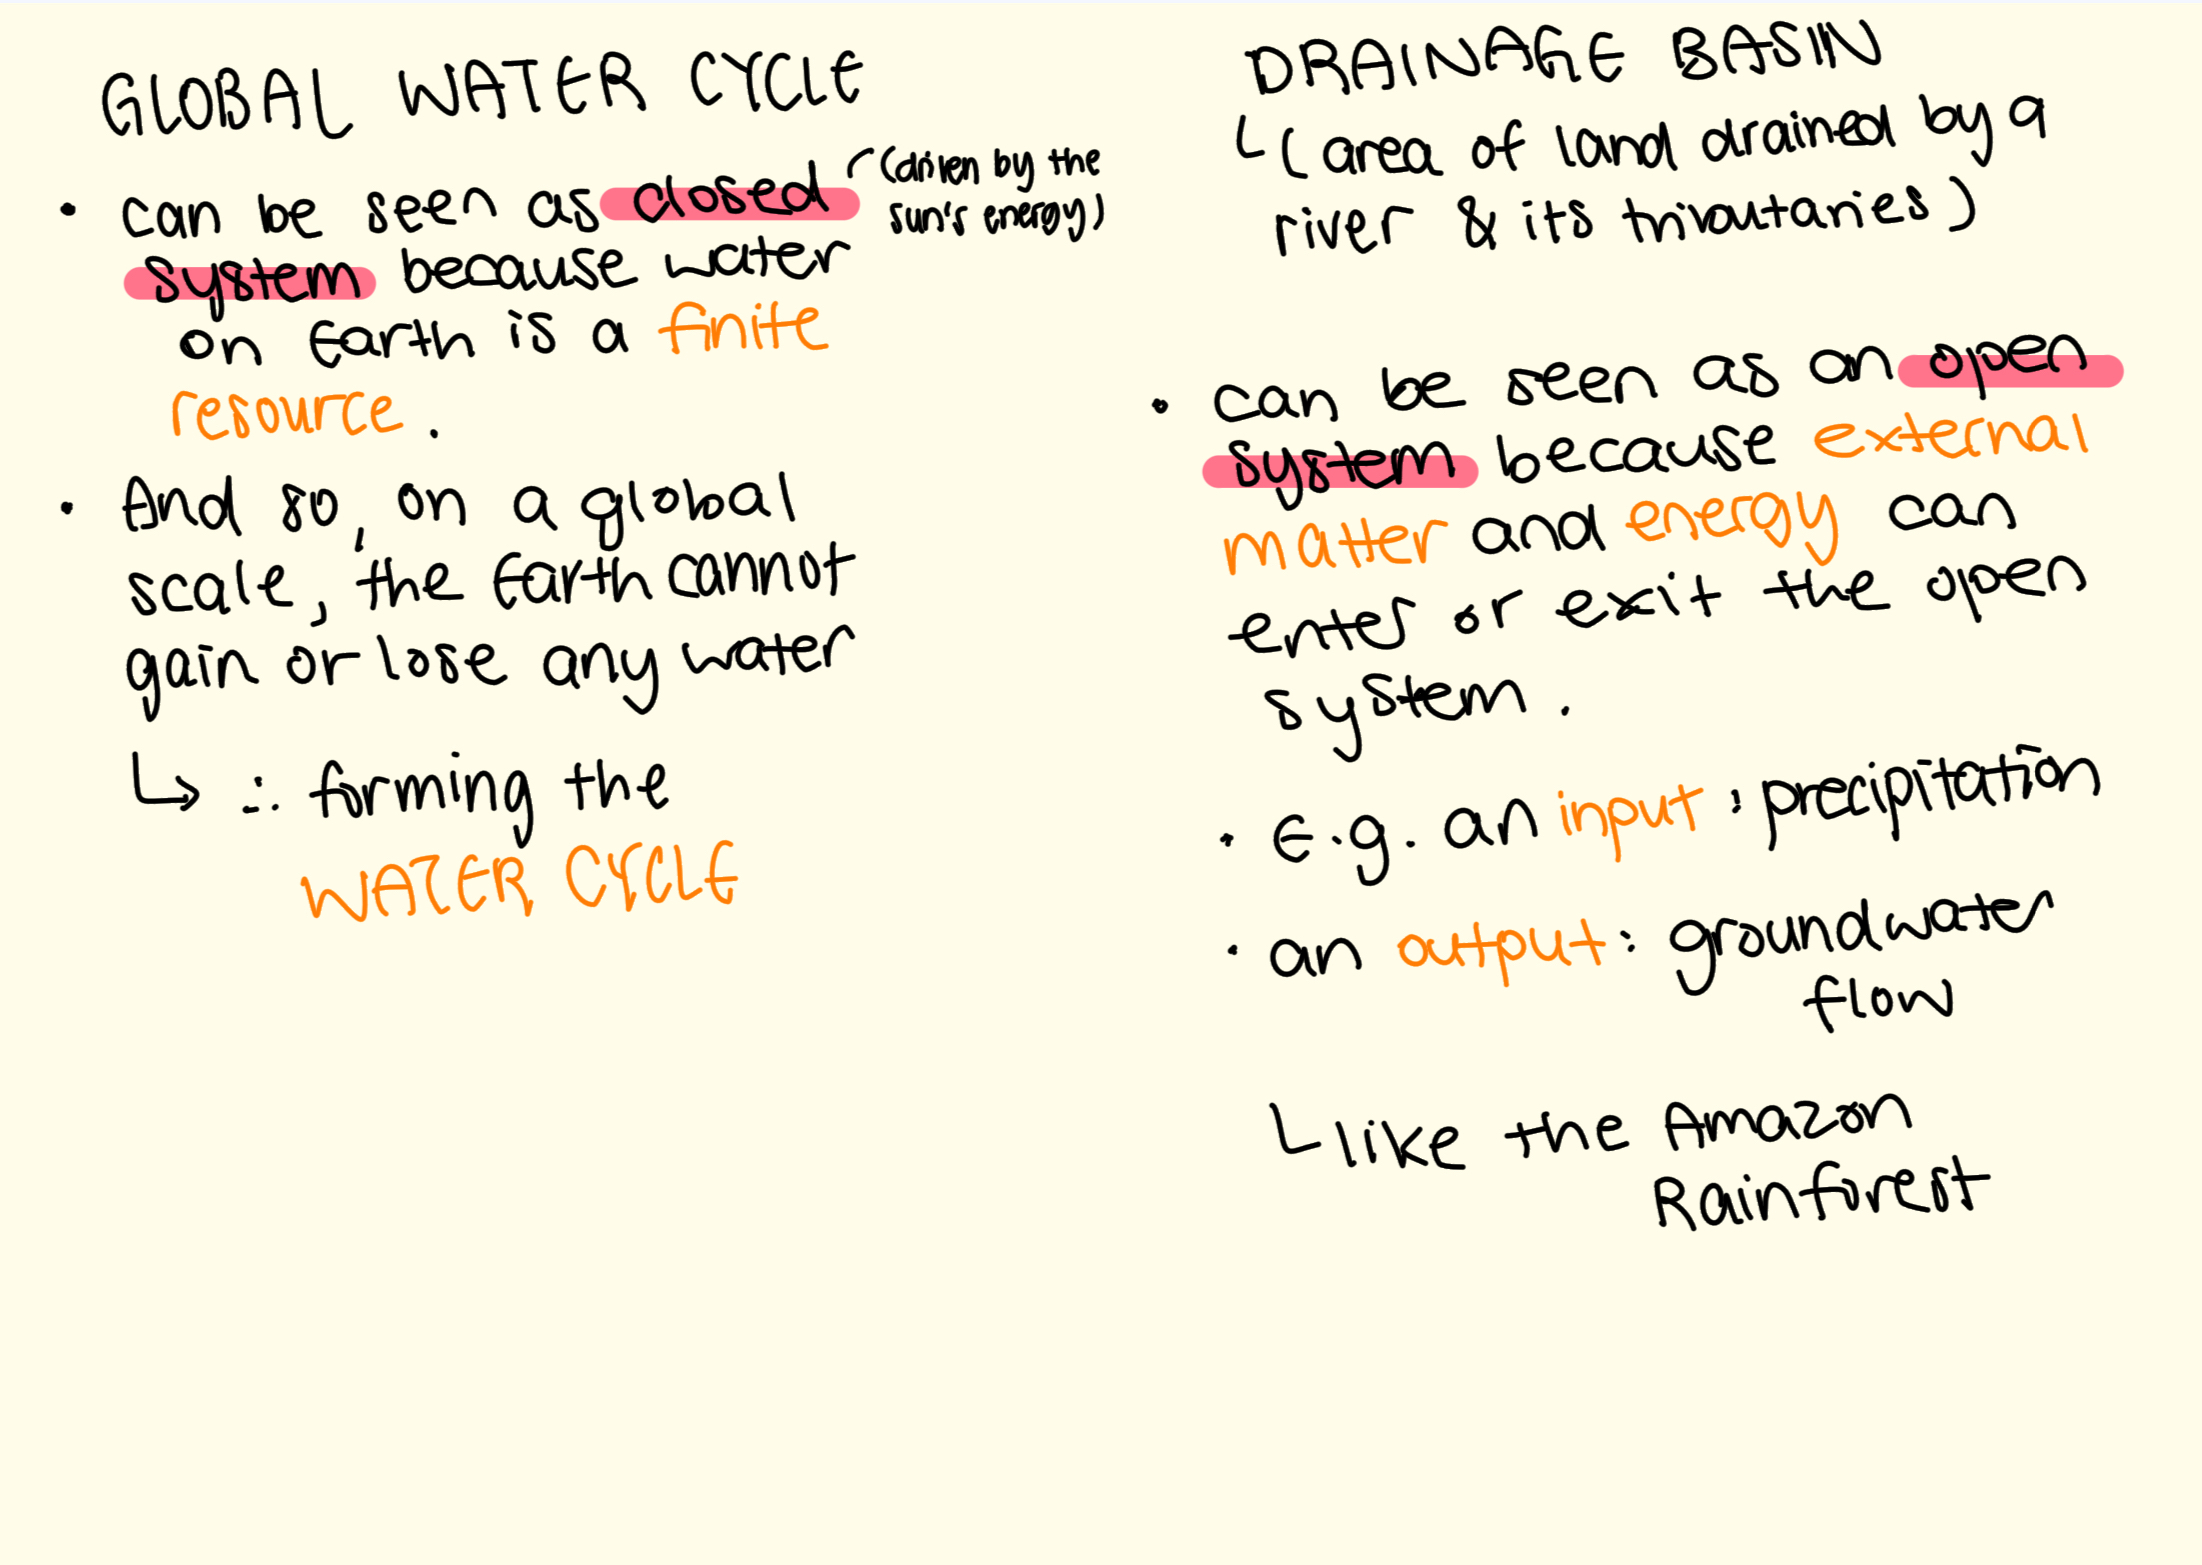 GLOBAL WATER CYCLE
• can be seen as closed (driven by the
sun's energy)
system because water
on Earth is a finite
resource.
• And so, on a global
scale, the Earth cannot
gain or lose any water
↳ ∴ forming the
WATER CYCLE
DRAINAGE BASIN
└ (area of land drained by a
river & its tributaries)
• can be seen as an open
system because external
matter and energy can
enter or exit the open
system.
• E.g. an input: precipitation
• an output: groundwater
flow
└ like the Amazon
Rainforest